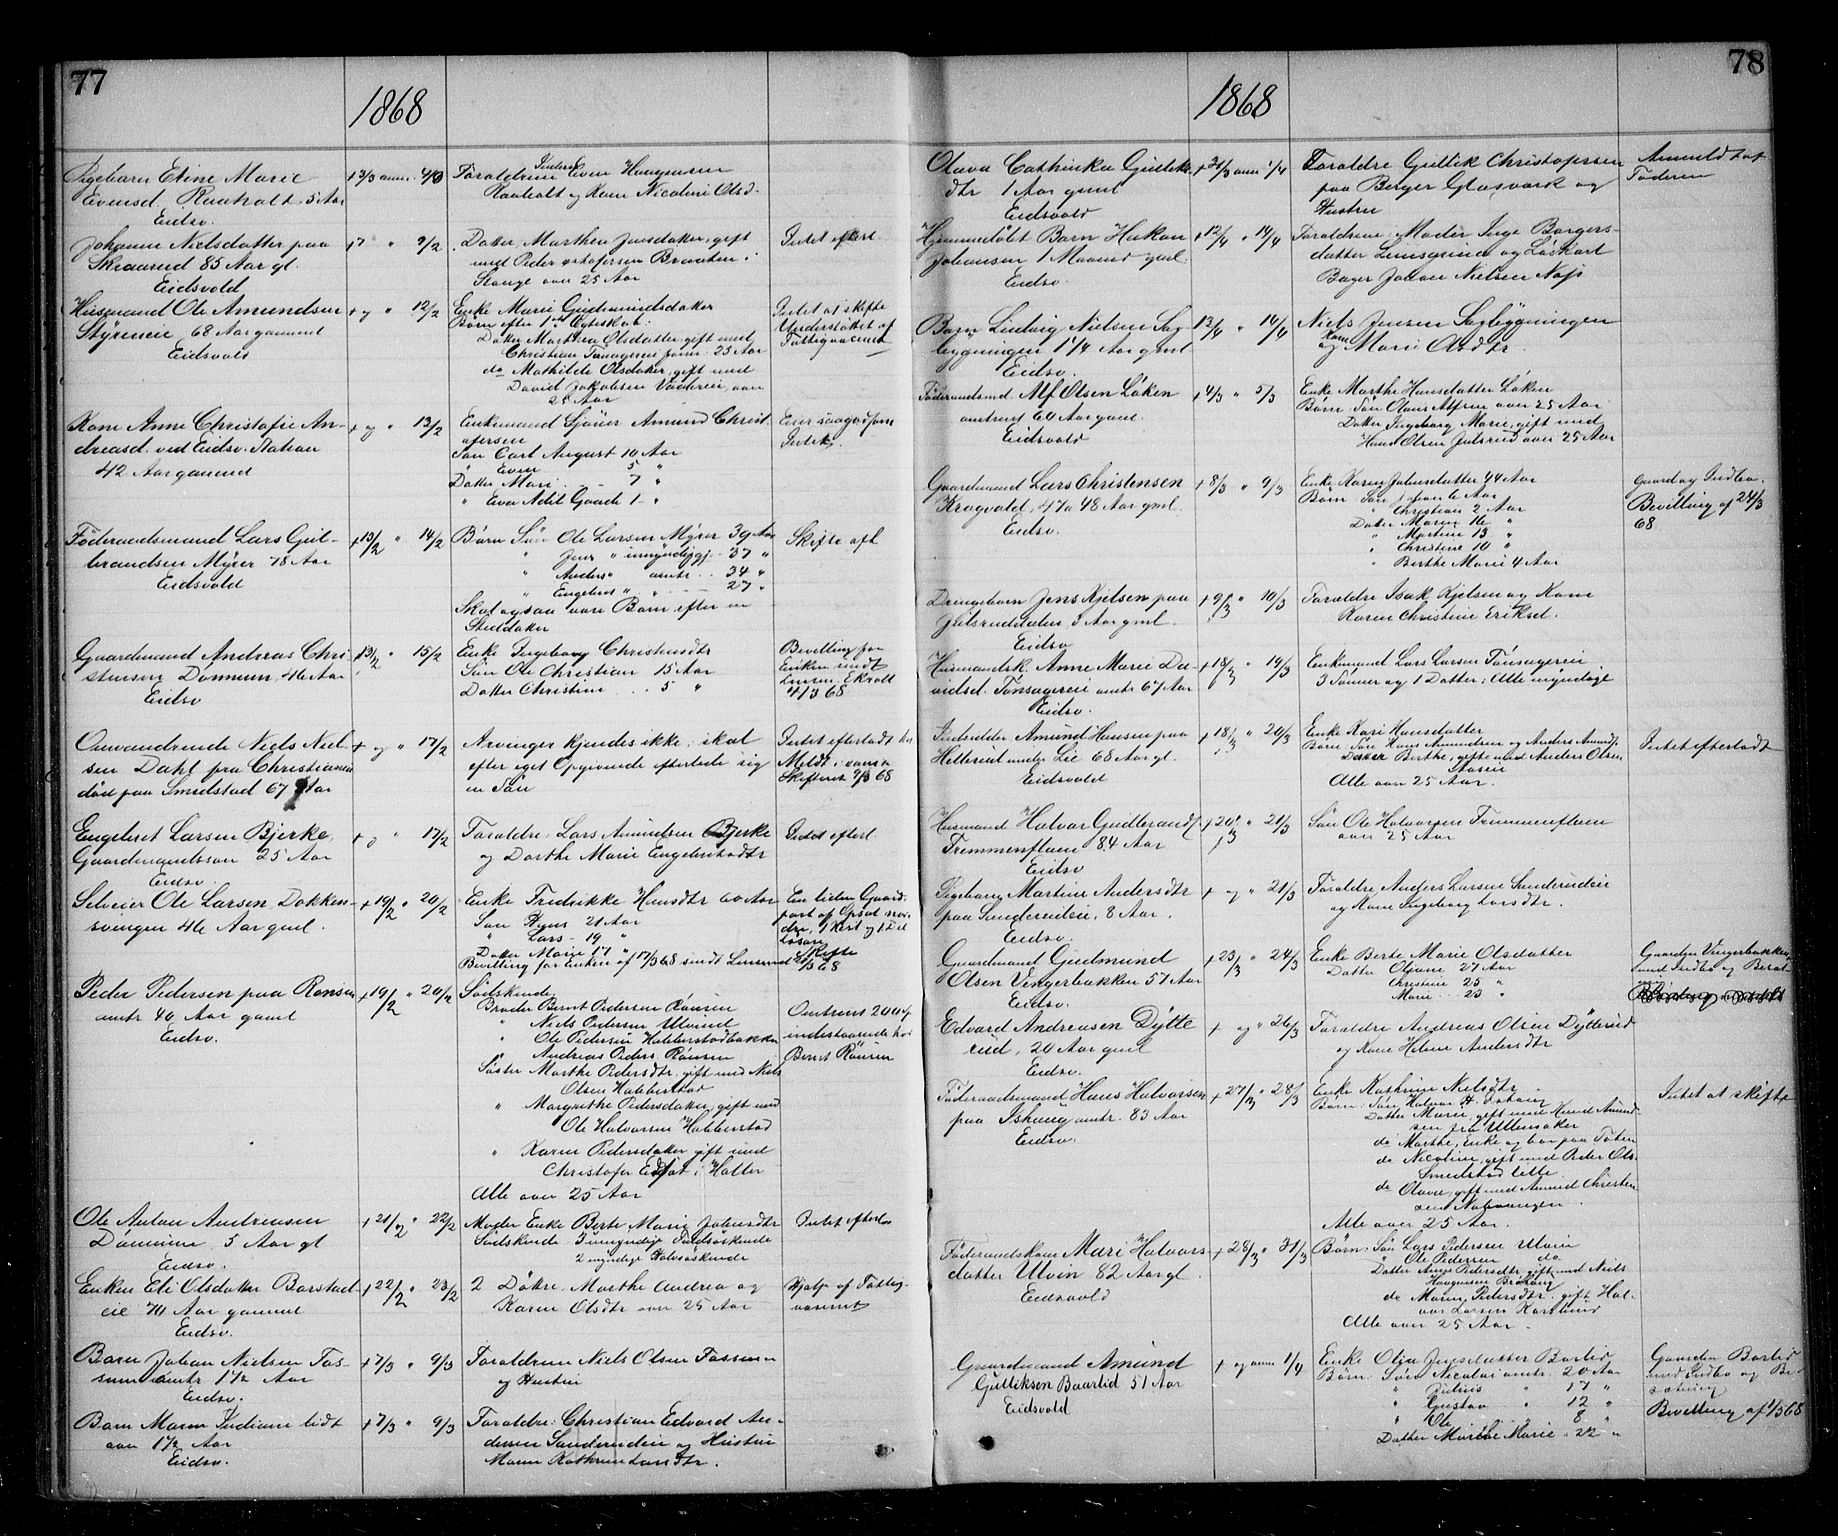 77
1868
Pigebarn Eline Marie
Evensd. Raaholt, 5 Aar
Eidsv.
+ 3/3 anm. 4/3
Forældrene Even Haagensen
Raaholt og Kone Nicoline Olsd.
Johanne Nielsdatter paa
Skraarud 85 Aar gl.
Eidsvold
+ 7 " 9/2
Datter Marthea Jensdatter, gift
med Peder Braaten i
Stange over 25 Aar
Intet efterl.
Husmand Ole Amundsen
Styrieie 68 Aar gammel
Eidsvold
+ og " 12/2
Enke Marie Gudmundsdatter
Børn efter 1st Ægteskab:
Datter Marthea Olsdatter, gift med
Christian Tønsagereie over 25 Aar
do Mathilde Olsdatter, gift med
David Jakobsen over
25 Aar
Intet at skifte
Understøttet af
Fattigvæsenet
Kone Anne Christofie An-
dreasd. ved Eidsv. Station
42 Aar gammel
+ og " 13/2
Enkemand Sjøuer Amund Christ-
ofersen
Søn Carl August 10 Aar
" Even 5 "
Datter Mari 7 "
" Eva Adel Gaade 1 "
Eier saagodtsom
Intet
Føderaadsmand Lars Gul-
brandsen Myrer 78 Aar
Eidsvold
+ 13/2 " 14/2
Børn Søn Ole Larsen Myrer 39 Aar
" Jens " 37 "
" Anders " omtr. 34 "
" Engebret " " 27 "
Skal ogsaa være Børn efter en
Skifte afh.
Gaardmand Andreas Chri-
stensen Dønnum, 46 Aar
Eidsv
+ 13/2 " 15/2
Enke Ingeborg Christensdtr
Søn Ole Christian 15 Aar
Datter Christine 5 "
Bevilling for
Enken sendt
4/3 68
Omvandrende Niels Niel-
sen Dahl fra Christiania
død paa Smedstad 67 Aar
+ og " 17/2
Arvinger kjendes ikke; skal
efter eget Opgivende efterlade sig
en Søn
Intet efterladt
Meldt
Skifteret 9/3 68
Engebret Larsen Bjerke
Gaardmandssøn 25 Aar
Eidsv.
+ " 17/2
Forældre: Lars Amundsen Bjerke
og Dorthe Marie Engebretsdtr
Intet efterl.
Selveier Ole Larsen Dokken-
svingen 46 Aar gml.
+ 19/2 " 20/2
Enke Fredrikke Hansdtr 60 Aar
Søn Hans 21 Aar
" Lars 19 "
Datter Marie 17 "
Bevilling for Enken af 17/3 68 sendt Lensmand 21/3 68
En liden Gaard-
part af Opsal
dre, 1 Hest og 1 Del
Løsøre
Skifte
Peder Pedersen paa Rønsen
omtr 40 Aar gaml
Eidsv.
+ 19/2 " 20/2
Sødskende
Broder Bernt Pedersen Rønsen
" Niels Pedersen Ulvind
" Ole Pedersen Habberstadbakken
" Andreas Peders. Rønsen
Søster Marthe Pedersdtr, gift med Niels
Olsen Habberstad
" Margrethe Pedersdatter, gift med
Ole Halvorsen Habberstad
" Karen Pedersdatter gift med
Christofer Eidsat i Holter
Alle over 25 Aar
Omtrent 200
indestaaende hos
Bernt Rønsen
Ole Anton Andreasen
Dønnum 5 Aar gl
Eidsv.
+ 21/2 " 22/2
Moder Enke Berte Marie Johnsdtr
Sødskende 3 umyndige Helsøskende
2 myndige Halvsøskende
Intet efterl
Enken Eli Olsdatter Borstad
eie 70 Aar gammel
Eidsv.
+ 22/2 " 23/2
2 Døtre. Marthe Andrea og
Karen Olsdtr over 25 Aar
Hjælp af Fattig-
væsenet
Barn Johan Nielsen Fos-
sum omtr 1 1/2 Aar
Eidsv.
+ 7/3 " 9/3
Forældrene Niels Olsen Fossum
og Hustru
Barn Maren Indiane lidt
over 1 1/2 Aar
Eidsv.
+ 7/3 " 9/3
Forældre: Christian Edvard An-
dersen Sundereieie og Hustru
Maren Kathrine Larsdtr.
78
1868
Olava Cathinka Gullik-
dtr 1 Aar gaml
Eidsvold
+ 31/3 anm 1/4
Forældre Gullik Christofersen
paa Berger Glasværk og
Hustru
Anmeldt af
Faderen
Hjemmedøbt Barn Hakon
Johansen 1 Maaned gml.
Eidsv.
+ 12/4 " 14/4
Forældrene: Moder Inge Borgers-
datter og Løskarl
Bager Johan Nielsen Næss
Barn Ludvig Nielsen Sag-
bygningen 1 1/4 Aar gml
Eidsv.
13/4 " 14/4
Niels Jensen Sagbygningen
og Kone Marie Olsdtr.
Føderaadsmd. Alf Olsen Løken
omtrent 60 Aar gaml.
Eidsvold
+ 4/3 " 5/3
Enke Marthe Hansdatter Løken
Børn: Søn Olaus Alfsen over 25 Aar
Datter Ingeborg Marie, gift med
Hans Olsen Julsrud over 25 Aar
Gaardmand Lars Christensen
Kragvold, 47 a 48 Aar gml.
Eidsv.
+ 8/3 " 9/3
Enke Karen Johnsdatter 44 Aar
Børn: Søn 6 Aar
" Christian 2 Aar
Datter Maren 16 "
" Martine 13 "
" Christine 10 "
" Berthe Marie 4 Aar
Gaard og Indbo.
Bevilling af 24/3
68
Drengebarn Jens Kjelsen paa
Julsruddalen, 3 Aar gml.
Eidsv.
+ 9/3 " 10/3
Forældre Isak Kjelsen og Kone
Karen Christine Eriksd.
Husmandsk. Anne Marie Da-
vidsd. Tønsagereie omtr 67 Aar
Eidsv.
+ 18/3 " 19/3
Enkemand Lars Larsen Tønsagereie
3 Sønner og 1 Datter; Alle myndige
Inderster Amund Hansen paa
Hellerud under Lie 68 Aar gl.
Eidsvold
+ 18/3 " 20/3
Enke Kari Hansdatter
Børn: Søn Hans Amundsen og Anders Amunds.
Datter Berthe, gift med Anders Olsen
Alle over 25 Aar.
Intet efterladt
Husmand Halvor Gudbrands.
Tremmenflaen 84 Aar
Eidsv
+ 20/3 " 21/3
Søn Ole Halvorsen Tremmenflaen
over 25 Aar
Pigebarn Martine Andersdtr
paa Sundereieie, 8 Aar.
Eidsv.
+ og " 21/3
Forældre Anders Larsen Sundereieie
og Kone Ingeborg Larsdtr.
Gaardmand Gudmund
Olsen Vingerbakken 57 Aar
Eidsv.
+ 23/3 " 24/3
Enke Berte Marie Olsdatter
Datter Oliane 27 Aar
" Christine 25 "
" Marie 23 "
Gaarden Vingerbakken
med Indbo og Besæt-
Edvard Andreasen Dytte-
rud, 20 Aar gml
Eidsv.
+ og " 26/3
Forældre Andreas Olsen Dytterud
og Kone Helene Andersdtr
Føderaadsmand Hans Halvorsen
paa Ishaug omtr. 83 Aar
Eidsv.
+ 27/3 " 28/3
Enke Kathrine Nielsdtr
Børn: Søn Halvor H. Ishaug
Datter Marie, gift med Knud Amund-
sen fra Ullensaker
do Marthe, Enke og bor paa Toten
do Nicoline, gift med Peder Ols.
Smedstad lille
do Olava, gift med Amund Christen-
sen
Alle over 25 Aar.
Intet at skifte
Føderaadskone Mari Halvors-
datter Ulvin 82 Aar gl.
Eidsvold
+ 28/3 " 31/3
Børn: Søn Lars Pedersen Ulvin
" Ole Pedersen do
Datter Anne Pedersdtr, gift med Niels
Haagensen
do Maren Pedersdtr. gift Hal-
vor Larsen
Alle over 25 Aar.
Gaardmand Amund
Gulliksen Baarlid 51 Aar
Eidsvold
+ og anm 1/4
Enke Olea Jensdatter Baarlid
Børn: Søn Nicolai omtr. 20 Aar
" Julius " 17 "
" Gustav " 12 "
" Ole " 8 "
Datter Marthe Marie 22 "
Gaarden Borlid
med Indbo og Be-
sætning
Bevilling af 1/5 68